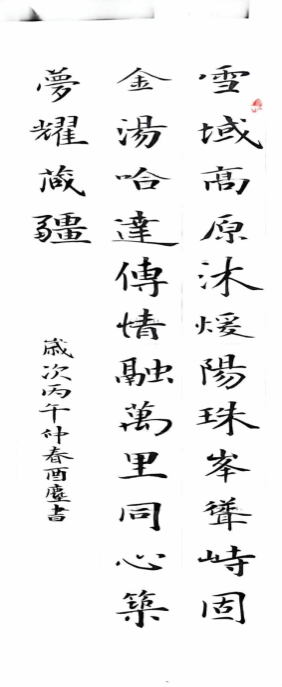 雪域高原沐煖陽珠峯聳峙固
金湯哈達傳情融萬里同心築
夢耀藏疆
歲次丙午仲春酉塵書